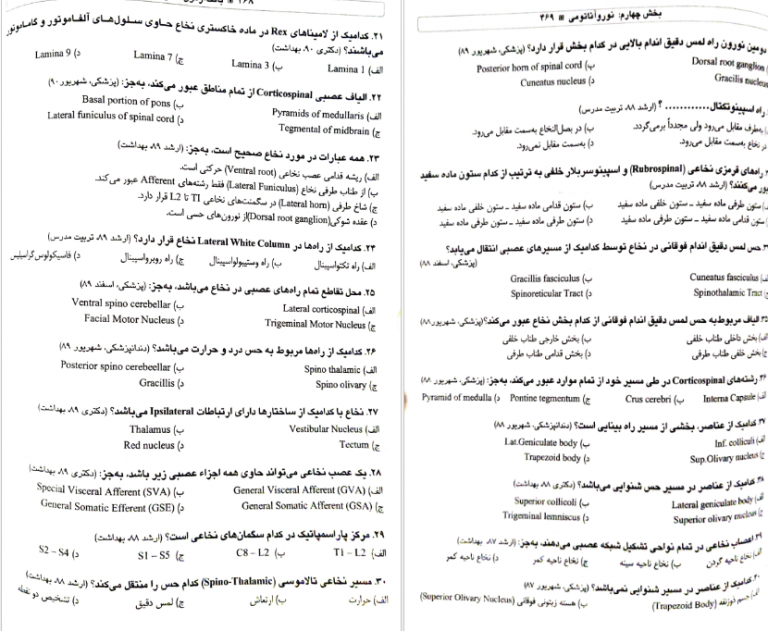 ۳۶۸
۲۱. کدامیک از لامیناهای Rex در ماده خاکستری نخاع حاوی سلول‌های آلفاموتور و گاماموتور
می‌باشند؟ (دکتری ۹۰، بهداشت)
الف) Lamina 1 ب) Lamina 3 ج) Lamina 7 د) Lamina 9
۲۲. الیاف عصبی Corticospinal از تمام مناطق عبور می‌کند، به‌جز: (پزشکی، شهریور ۹۰)
الف) Pyramids of medullaris ب) Basal portion of pons
ج) Tegmental of midbrain د) Lateral funiculus of spinal cord
۲۳. همه عبارات در مورد نخاع صحیح است، به‌جز: (ارشد ۸۹، بهداشت)
الف) ریشه قدامی عصب نخاعی (Ventral root) حرکتی است.
ب) از طناب طرفی نخاع (Lateral Funiculus) فقط رشته‌های Afferent عبور می‌کند.
ج) شاخ طرفی (Lateral horn) در سگمنت‌های نخاعی T1 تا L2 قرار دارد.
د) عقده شوکی (Dorsal root ganglion) از نورون‌های حسی است.
۲۴. کدامیک از راه‌ها در Lateral White Column نخاع قرار دارد؟ (ارشد ۸۹، تربیت مدرس)
الف) راه تکتواسپینال ب) راه وستیبولواسپینال ج) راه روبرواسپینال د) فاسیکولوس گراسیلیس
۲۵. محل تقاطع تمام راه‌های عصبی در نخاع می‌باشد، به‌جز: (پزشکی، اسفند ۸۹)
الف) Lateral corticospinal ب) Ventral spino cerebellar
ج) Trigeminal Motor Nucleus د) Facial Motor Nucleus
۲۶. کدامیک از راه‌ها مربوط به حس درد و حرارت می‌باشد؟ (دندانپزشکی، شهریور ۸۹)
الف) Spino thalamic ب) Posterior spino cerebeellar
ج) Spino olivary د) Gracillis
۲۷. نخاع با کدامیک از ساختارها دارای ارتباطات Ipsilateral می‌باشد؟ (دکتری ۸۹، بهداشت)
الف) Vestibular Nucleus ب) Thalamus
ج) Tectum د) Red nucleus
۲۸. یک عصب نخاعی می‌تواند حاوی همه اجزاء عصبی زیر باشد، به‌جز: (دکتری ۸۹، بهداشت)
الف) General Visceral Afferent (GVA) ب) Special Visceral Afferent (SVA)
ج) General Somatic Afferent (GSA) د) General Somatic Efferent (GSE)
۲۹. مرکز پاراسمپاتیک در کدام سگمان‌های نخاعی است؟ (ارشد ۸۸، بهداشت)
الف) T1 – L2 ب) C8 – L2 ج) S1 – S5 د) S2 – S4
۳۰. مسیر نخاعی تالاموسی (Spino-Thalamic) کدام حس را منتقل می‌کند؟ (ارشد ۸۸، بهداشت)
الف) حرارت ب) ارتعاش ج) لمس دقیق د) تشخیص دو نقطه
بخش چهارم: نوروآناتومی ۳۶۹
دومین نورون راه لمس دقیق اندام بالایی در کدام بخش قرار دارد؟ (پزشکی، شهریور ۸۹)
Dorsal root ganglion ب) Posterior horn of spinal cord
Gracilis nucleus د) Cuneatus nucleus
راه اسپینوتکتال............ ؟ (ارشد ۸۸، تربیت مدرس)
به‌طرف مقابل می‌رود ولی مجدداً برمی‌گردد. ب) در بصل‌النخاع به‌سمت مقابل می‌رود.
در نخاع به‌سمت مقابل می‌رود. د) به‌سمت مقابل نمی‌رود.
راه‌های قرمزی نخاعی (Rubrospinal) و اسپینوسربلار خلفی به ترتیب از کدام ستون ماده سفید
می‌کنند؟ (ارشد ۸۸، تربیت مدرس)
ستون طرفی ماده سفید ـ ستون خلفی ماده سفید ب) ستون قدامی ماده سفید ـ ستون خلفی ماده سفید
ستون قدامی ماده سفید ـ ستون طرفی ماده سفید د) ستون طرفی ماده سفید ـ ستون طرفی ماده سفید
حس لمس دقیق اندام فوقانی در نخاع توسط کدامیک از مسیرهای عصبی انتقال می‌یابد؟
(پزشکی، اسفند ۸۸)
Cuneatus fasciculus ب) Gracillis fasciculus
Spinothalamic Tract د) Spinoreticular Tract
۳۵. الیاف مربوط‌به حس لمس دقیق اندام فوقانی از کدام بخش نخاع عبور می‌کند؟ (پزشکی، شهریور ۸۸)
الف) بخش داخلی طناب خلفی ب) بخش خارجی طناب خلفی
ج) بخش خلفی طناب طرفی د) بخش قدامی طناب طرفی
۳۶. رشته‌های Corticospinal در طی مسیر خود از تمام موارد عبور می‌کند، به‌جز: (پزشکی، شهریور ۸۸)
الف) Interna Capsule ب) Crus cerebri ج) Pontine tegmentum د) Pyramid of medulla
۳۷. کدامیک از عناصر، بخشی از مسیر راه بینایی است؟ (دندانپزشکی، شهریور ۸۸)
الف) Inf. colliculi ب) Lat.Geniculate body
ج) Sup.Olivary nucleus د) Trapezoid body
۳۸. کدامیک از عناصر در مسیر حس شنوایی می‌باشد؟ (دکتری ۸۸، بهداشت)
الف) Lateral geniculate body ب) Superior collicoli
ج) Superior olivary nucleus د) Trigeminal lemniscus
۳۹. اعصاب نخاعی در تمام نواحی تشکیل شبکه عصبی می‌دهند، به‌جز: (ارشد ۸۷، بهداشت)
الف) نخاع ناحیه گردن ب) نخاع ناحیه سینه ج) نخاع ناحیه کمر د) نخاع ناحیه کمر
۴۰. کدامیک از عناصر در مسیر شنوایی نمی‌باشد؟ (پزشکی، شهریور ۸۷)
الف) جسم ذوزنقه (Trapezoid Body) ب) هسته زیتونی فوقانی (Superior Olivary Nucleus)